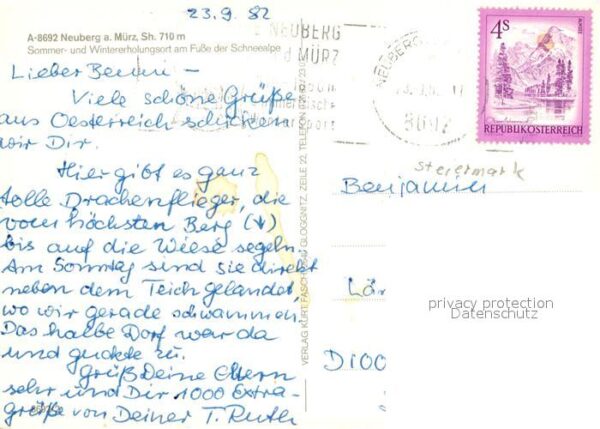 23.9.82
A-8692 Neuberg a. Mürz, Sh. 710 m
Sommer- und Wintererholungsort am Fuße der Schneealpe
Lieber Benni –
Viele schöne Grüße
aus Oesterreich schicken
wir Dir.
Hier gibt es ganz
tolle Drachenflieger, die
vom höchsten Berg (↓)
bis auf die Wiese segeln.
Am Sonntag sind sie direkt
neben dem Teich gelandet,
wo wir gerade schwammen.
Das halbe Dorf war da
und guckte zu.
Grüß Deine Eltern
sehr und Dir 1000 Extra-
grüße von Deiner T. Ruth
NEUBERG
MÜRZ
VERLAG KURT FASCHING GLOGGNITZ, ZEILE 22, TELEFON
NEUBERG
4S
REPUBLIK ÖSTERREICH
Steiermark
Benjamin
D100
privacy protection
Datenschutz